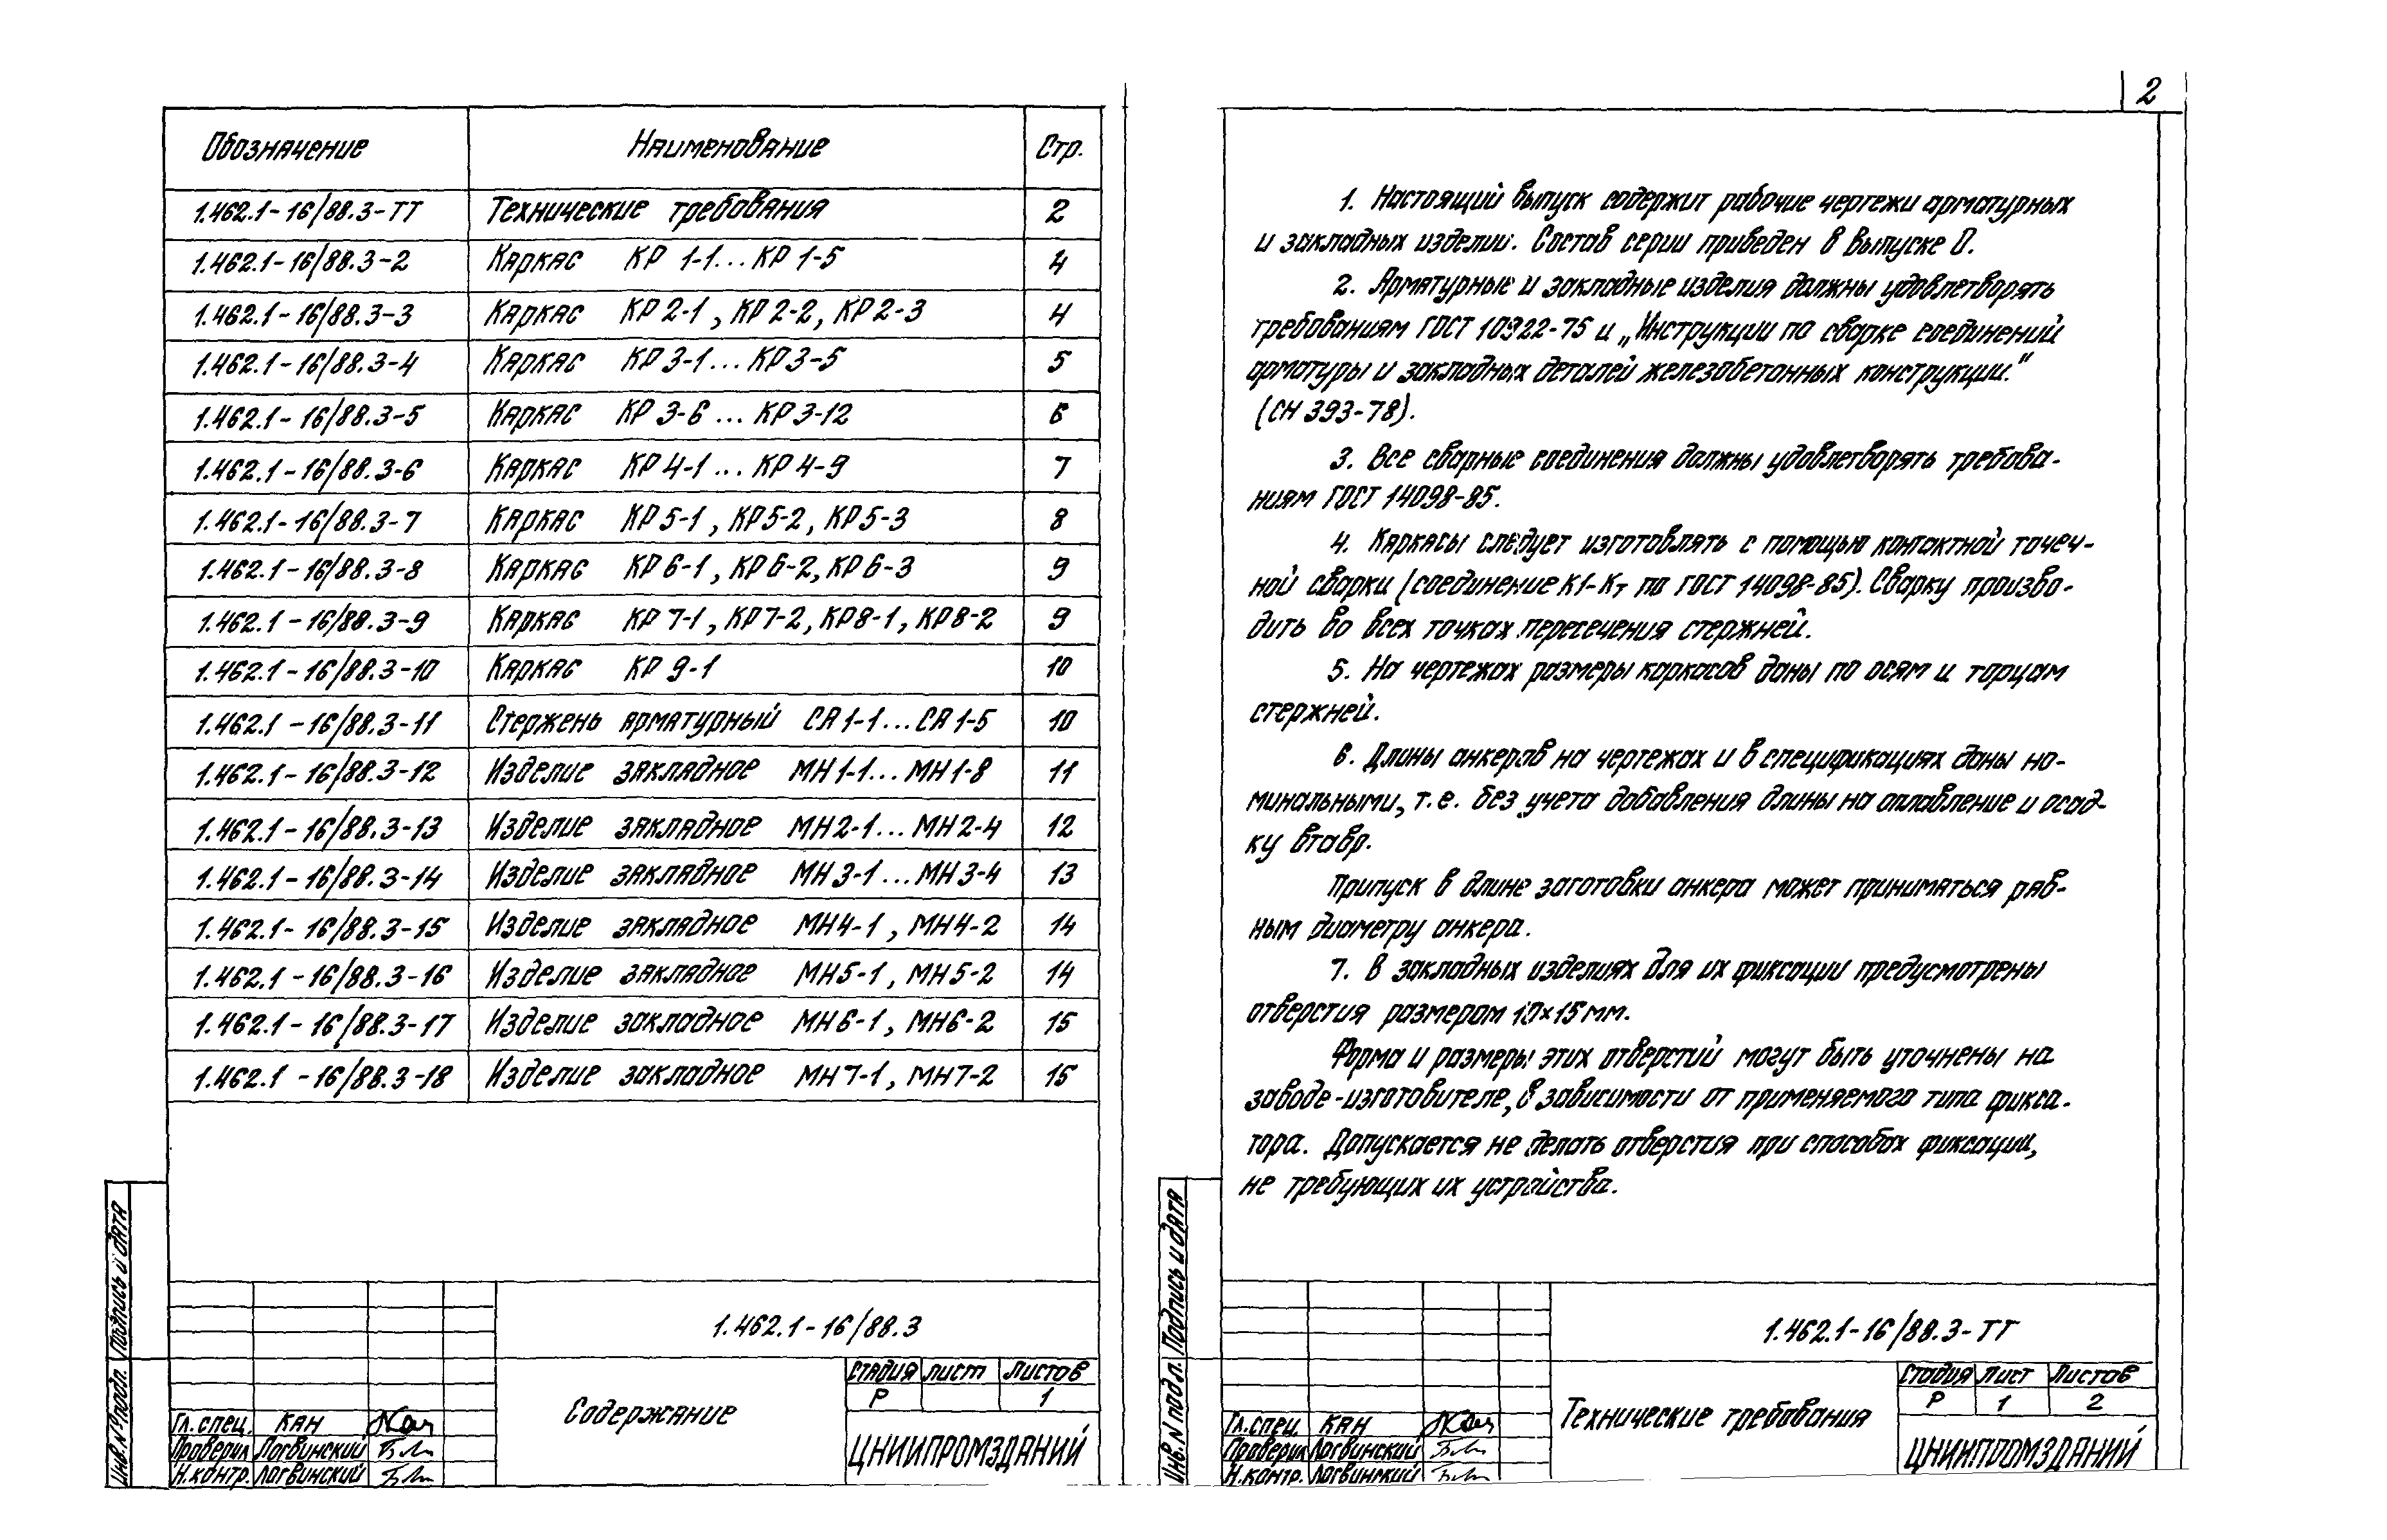 Обозначение Наименование Стр.
1.462.1-16/88.3-ТТ Технические требования 2
1.462.1-16/88.3-2 Каркас КР 1-1...КР 1-5 4
1.462.1-16/88.3-3 Каркас КР 2-1, КР 2-2, КР 2-3 4
1.462.1-16/88.3-4 Каркас КР 3-1...КР 3-5 5
1.462.1-16/88.3-5 Каркас КР 3-6...КР 3-12 6
1.462.1-16/88.3-6 Каркас КР 4-1...КР 4-9 7
1.462.1-16/88.3-7 Каркас КР 5-1, КР 5-2, КР 5-3 8
1.462.1-16/88.3-8 Каркас КР 6-1, КР 6-2, КР 6-3 9
1.462.1-16/88.3-9 Каркас КР 7-1, КР 7-2, КР 8-1, КР 8-2 9
1.462.1-16/88.3-10 Каркас КР 9-1 10
1.462.1-16/88.3-11 Стержень арматурный СА 1-1...СА 1-5 10
1.462.1-16/88.3-12 Изделие закладное МН 1-1...МН 1-8 11
1.462.1-16/88.3-13 Изделие закладное МН 2-1...МН 2-4 12
1.462.1-16/88.3-14 Изделие закладное МН 3-1...МН 3-4 13
1.462.1-16/88.3-15 Изделие закладное МН 4-1, МН 4-2 14
1.462.1-16/88.3-16 Изделие закладное МН 5-1, МН 5-2 14
1.462.1-16/88.3-17 Изделие закладное МН 6-1, МН 6-2 15
1.462.1-16/88.3-18 Изделие закладное МН 7-1, МН 7-2 15
Инв. № подл. Подпись и дата
1.462.1-16/88.3
Содержание
Стадия Лист Листов
Р 1
ЦНИИПРОМЗДАНИЙ
Гл. спец. Кан
Проверил Логвинский
Н. контр. Логвинский
2
1. Настоящий выпуск содержит рабочие чертежи арматурных
и закладных изделий. Состав серии приведен в выпуске 0.
2. Арматурные и закладные изделия должны удовлетворять
требованиям ГОСТ 10922-75 и „Инструкции по сварке соединений
арматуры и закладных деталей железобетонных конструкции."
(СН 393-78).
3. Все сварные соединения должны удовлетворять требова-
ниям ГОСТ 14098-85.
4. Каркасы следует изготовлять с помощью контактной точеч-
ной сварки (соединение К1-Кт по ГОСТ 14098-85). Сварку произво-
дить во всех точках пересечения стержней.
5. На чертежах размеры каркасов даны по осям и торцам
стержней.
6. Длины анкеров на чертежах и в спецификациях даны но-
минальными, т.е. без учета добавления длины на оплавление и осад-
ку втавр.
Припуск в длине заготовки анкера может приниматься рав-
ным диаметру анкера.
7. В закладных изделиях для их фиксации предусмотрены
отверстия размером 10×15 мм.
Форма и размеры этих отверстий могут быть уточнены на
заводе-изготовителе, в зависимости от применяемого типа фикса-
тора. Допускается не делать отверстия при способах фиксации,
не требующих их устройства.
Инв. № подл. Подпись и дата
1.462.1-16/88.3-ТТ
Технические требования
Стадия Лист Листов
Р 1 2
ЦНИИПРОМЗДАНИЙ
Гл. спец. Кан
Проверил Логвинский
Н. контр. Логвинский